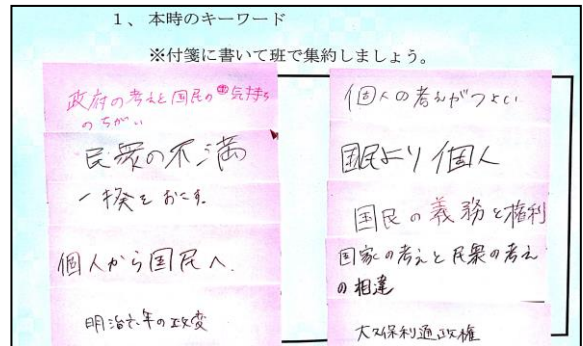 1、本時のキーワード
※付箋に書いて班で集約しましょう。
政府の考えと国民の気持ち
のちがい
民衆の不満
一揆をおこす。
個人から国民へ.
明治六年の政変
個人の考えがつよい
国民より個人
国民の義務と権利
国家の考えと民衆の考え
の相違
大久保利通政権